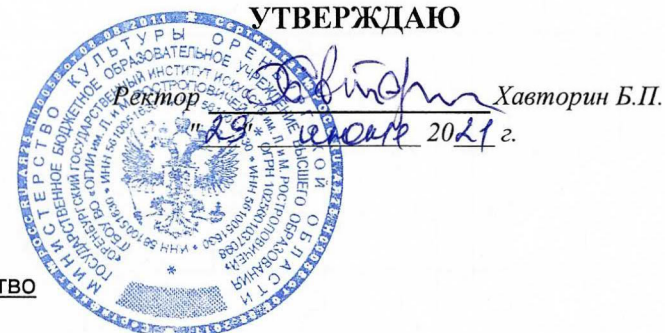 УТВЕРЖДАЮ
Ректор Хавторин Б.П.
"29" июня 2021 г.
МИНИСТЕРСТВО КУЛЬТУРЫ ОРЕ ОЙ ОБЛАСТИ
ГОСУДАРСТВЕННОЕ БЮДЖЕТНОЕ ОБРАЗОВАТЕЛЬНОЕ УЧРЕЖДЕНИЕ ВЫСШЕГО ОБРАЗОВАНИЯ
ОРЕНБУРГСКИЙ ГОСУДАРСТВЕННЫЙ ИНСТИТУТ
тво